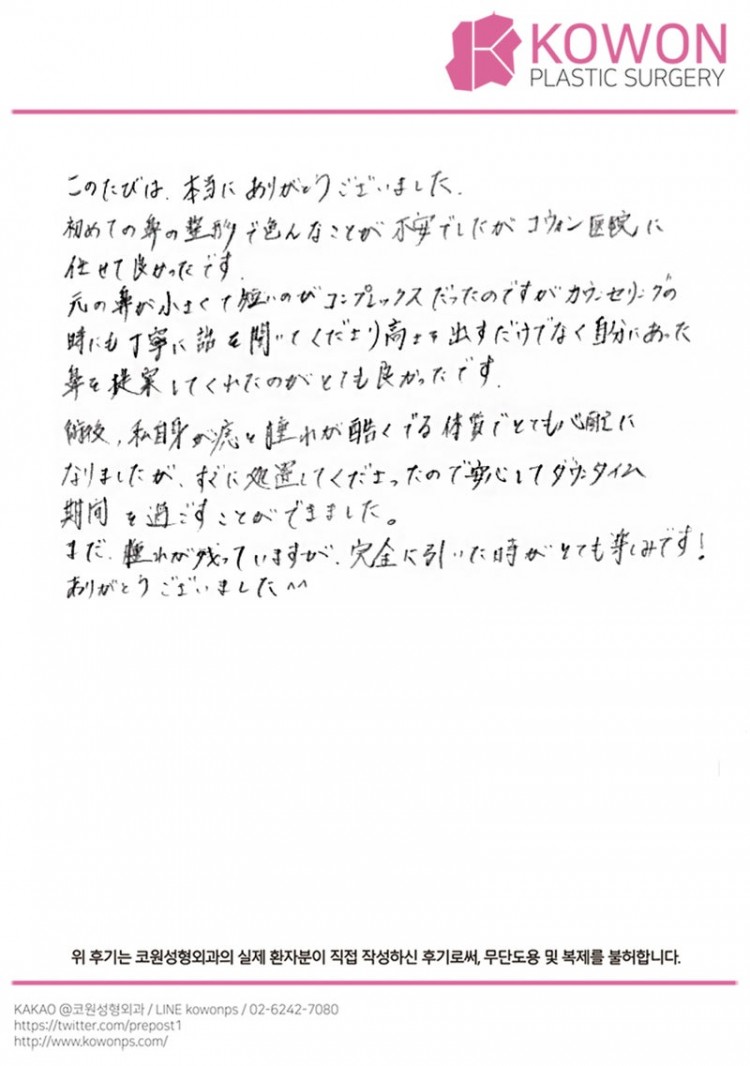 KOWON
PLASTIC SURGERY
このたびは、本当にありがとうございました.
初めての鼻の整形で色んなことが不安でしたがコウォン医院に
任せて良かったです.
元の鼻が小さくて短いのがコンプレックスだったのですがカウンセリングの
時にも丁寧に話を聞いてくださり高さを出すだけでなく自分にあった
鼻を提案してくれたのがとても良かったです.
術後、私自身が痣と腫れが酷くでる体質でとても心配に
なりましたが、すぐに処置してくださったので安心してダウンタイム
期間を過ごすことができました。
まだ、腫れが残っていますが、完全に引いた時がとても楽しみです!
ありがとうございました^^
위 후기는 코원성형외과의 실제 환자분이 직접 작성하신 후기로써, 무단도용 및 복제를 불허합니다.
KAKAO @코원성형외과 / LINE kowonps / 02-6242-7080
https://twitter.com/prepost1
http://www.kowonps.com/